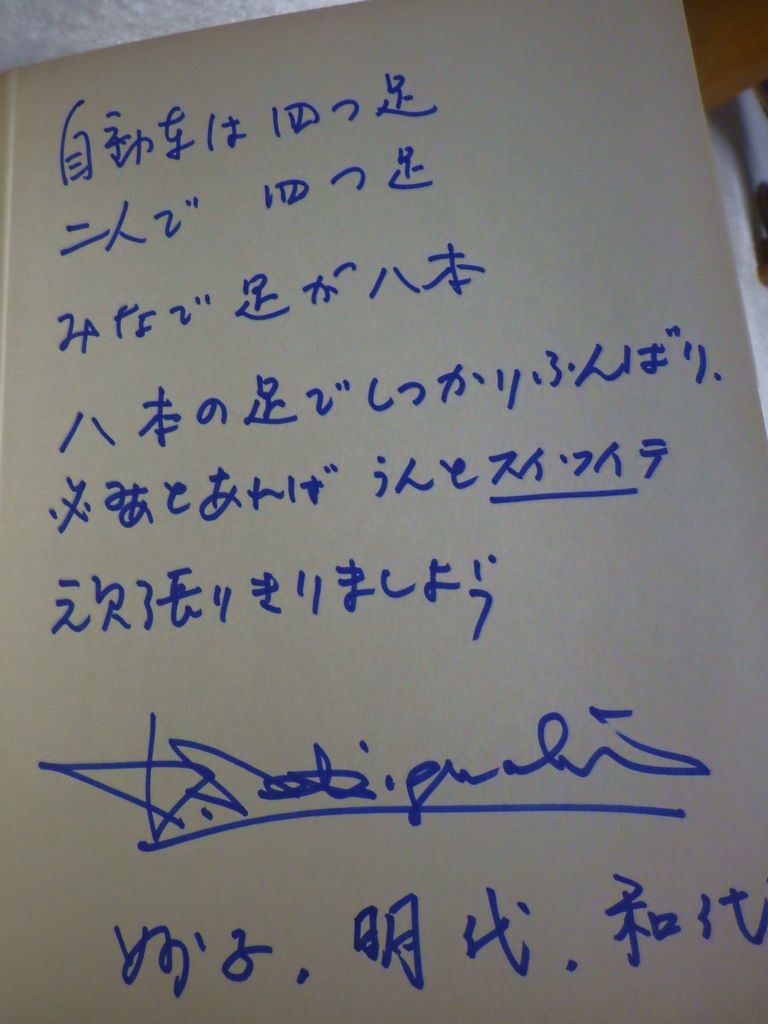 自動車は四つ足
二人で 四つ足
みなで足が八本
八本の足でしっかりふんばり、
必要とあればうんと
頑張りきりましょう
妙子、明代、和代